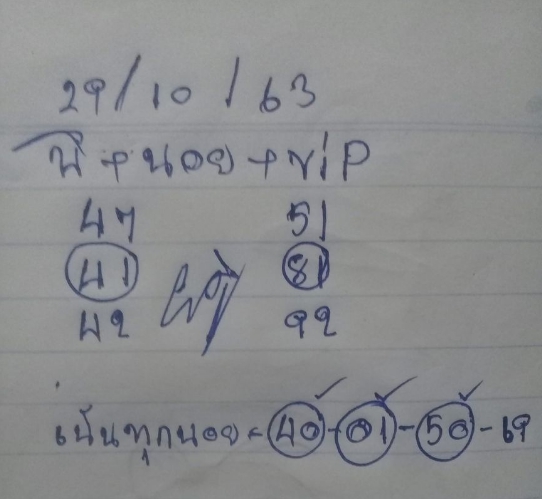 29/10/63
นี+นอย+vip
47 51
41 81
42 92
เน้นทุกนอย=40-01-50-69